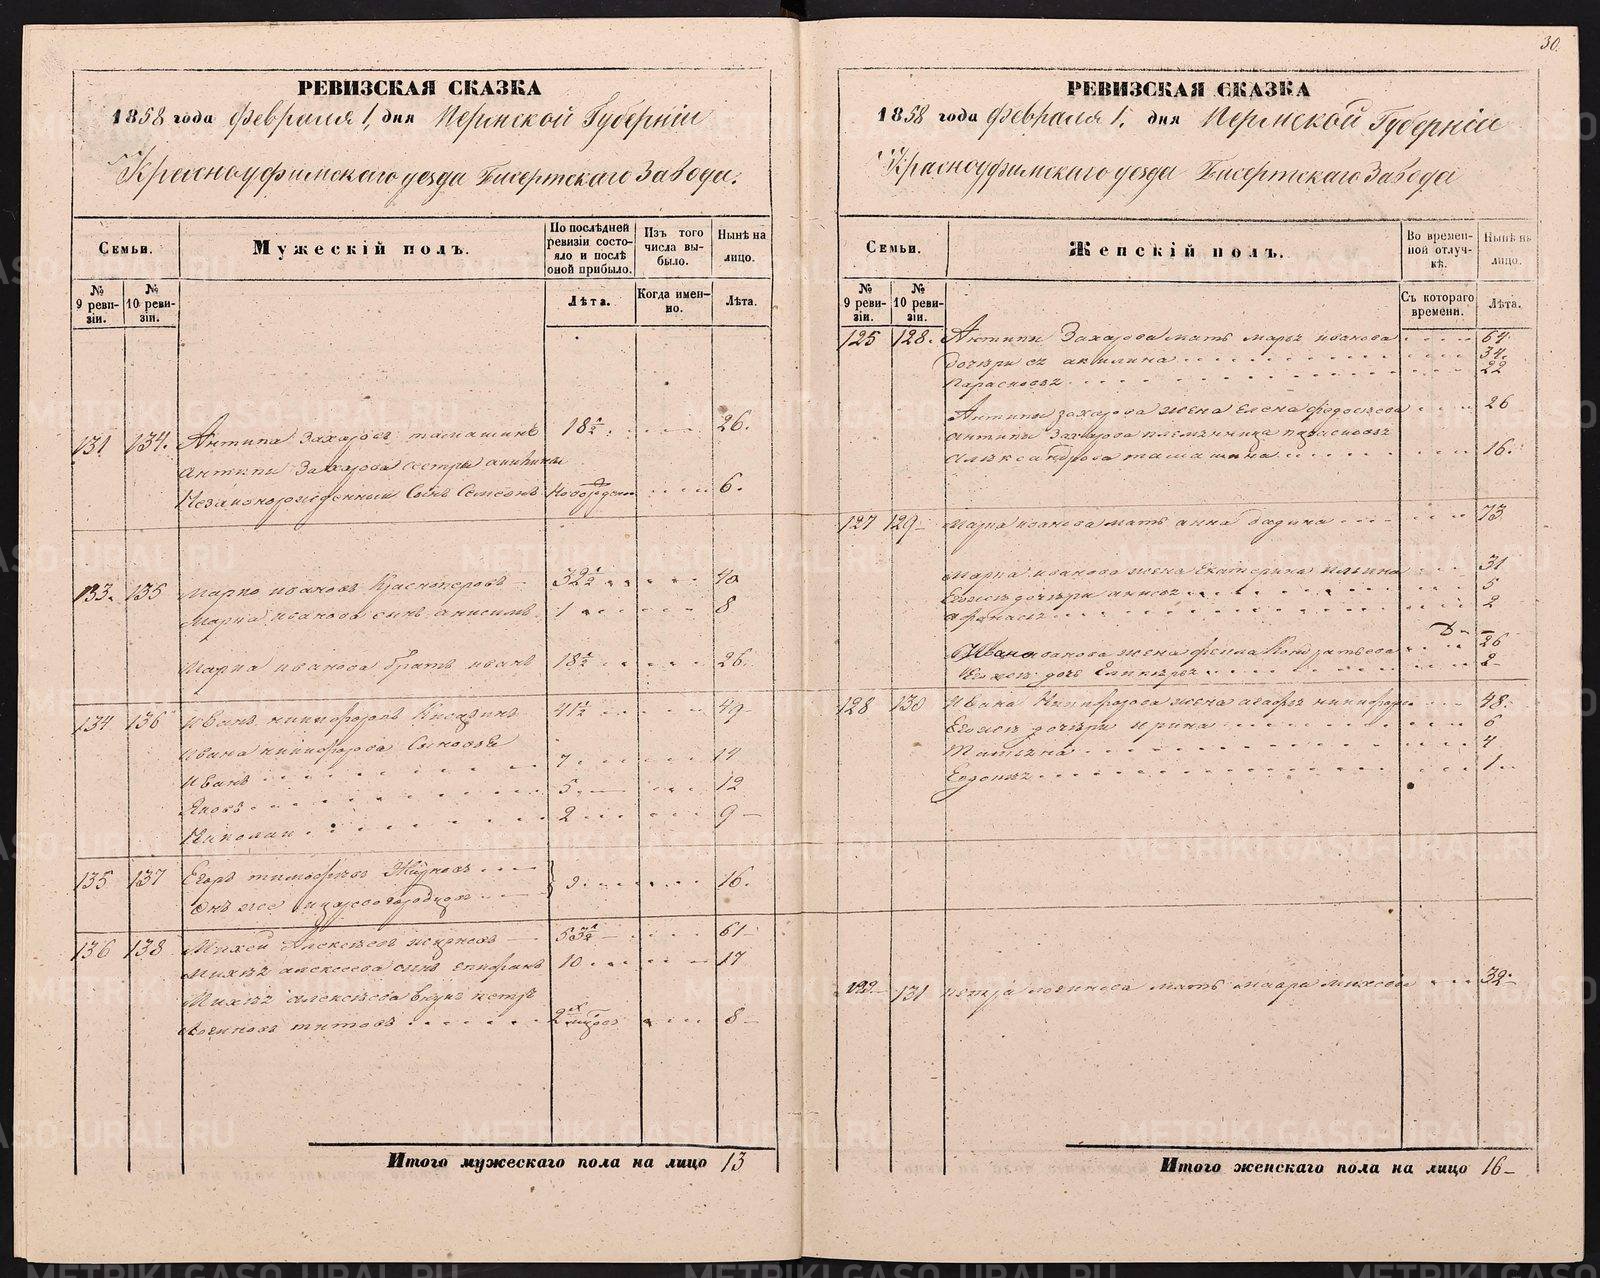 РЕВИЗСКАЯ СКАЗКА
1858 года Февраля 1, дня Пермской Губерніи
Красноуфимскаго уезда Бисертскаго Завода.
Семьи.
№ 9 реви-
зіи.
№ 10 реви-
зіи.
Мужескій полъ.
По послѣдней
ревизіи состо-
яло и послѣ
оной прибыло.
Изъ того
числа вы-
было.
Нынѣ на
лицо.
Лѣта.
Когда имен-
но.
Лѣта.
131 134. Антипа Захаровъ 18½ 26.
Антипы Захарова сестры
Незаконорожденный Сынъ Семенъ 6.
133. 135 Марко ивановъ Красноперовъ 32½ 40
Марка иванова сынъ анисимъ 1 8
Марка иванова братъ иванъ 18½ 26
134 136 Иванъ никифоровъ 41½ 49
Ивана никифорова Сыновья
Иванъ 7 14
Яковъ 5 12
Николай 2 9
135 137 Егоръ тимофѣевъ 9 16.
Онъ же
136 138 Михей Алексѣевъ 53½ 61
Михѣя алексеева сынъ епифанъ 10 17
Михѣя алексѣева внукъ петръ
логиновъ титовъ 2 8
Итого мужескаго пола на лицо 13
30.
РЕВИЗСКАЯ СКАЗКА
1858 года Февраля 1, дня Пермской Губерніи
Красноуфимскаго уезда Бисертскаго Завода
Семьи.
№ 9 реви-
зіи.
№ 10 реви-
зіи.
Женскій полъ.
Во времен-
ной отлуч-
кѣ.
Нынѣ на
лицо.
Съ котораго
времени.
Лѣта.
125 128. Антипы Захарова мать марья иванова 64
дочери ея акилина 34.
Парасковья 22
Антипы захарова жена елена федосѣева 26
антипы Захарова племянница парасковья
александрова 16.
127 129 Марка иванова мать анна 73
Марка иванова жена Екатерина ильина 31
Егожъ дочери анисья 5
афанасья 2
Ивана иванова жена фекла Кондратьева 26
Егожъ дочь 2
128 130 Ивана Никифорова жена агафья никифорова 48.
Егожъ дочери ирина 6
Татьяна 4
Евдокья 1
129 131 петра логинова мать мавра михеева 32
Итого женскаго пола на лицо 16
METRIKI.GASO-URAL.RU